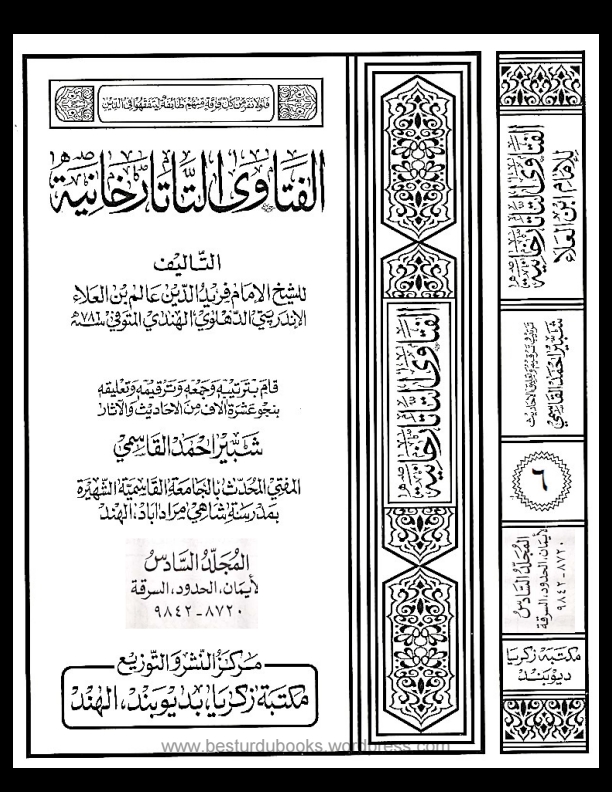 فلولا نفر من كل فرقة منهم طائفة ليتفقهوا في الدين
الفتاوى التاتارخانية
التأليف
للشيخ الإمام فريد الدين عالم بن العلاء
الإندربتي الدهلوي الهندي المتوفى سنة ٧٨٦ھ
قام بترتيبه وجمعه وترقيمه وتعليقه
بنحو عشرة آلاف من الأحاديث والآثار
شبير احمد القاسمي
المفتي المحدث بالجامعة القاسمية الشهيرة
بمدرسة شاهي مراداباد، الهند
المجلد السادس
لأيمان، الحدود، السرقة
٨٧٢٠-٩٨٤٢
مركز النشر والتوزيع
مكتبة زكريا، بديوبند، الهند
الفتاوى التاتارخانية
الفتاوى التاتارخانية
للإمام ابن العلاء
شبير احمد القاسمي
٦
المجلد السادس
لأيمان، الحدود، السرقة
٨٧٢٠-٩٨٤٢
مكتبة زكريا
ديوبند
www.besturdubooks.wordpress.com